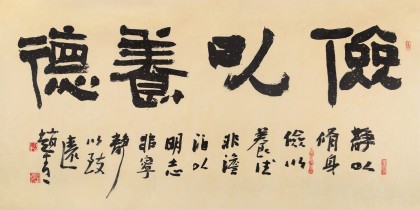 儉㠯養德
静以
脩身
儉以
養德
非澹
泊以
明志
非寧
静
以致
遠